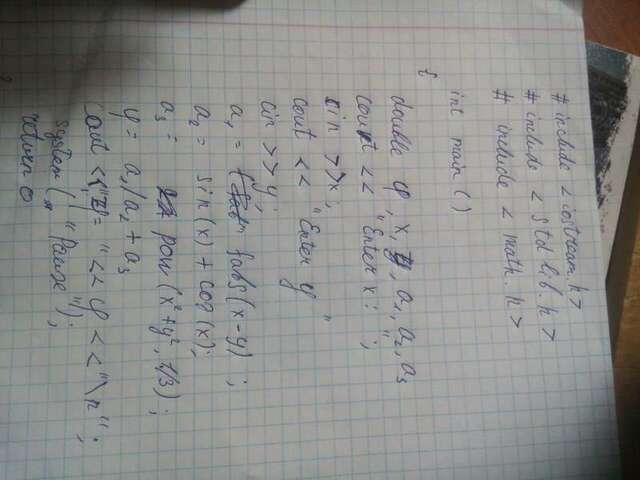 # include < iostream.h >
# include < std lib.h >
# include < math.h >
int main ( )
{
double φ, x, y, a1, a2, a3
cout << "Enter x: ";
cin >> x;
cout << "Enter y "
cin >> y;
a1 = fabs (x-y) ;
a2 = sin (x) + cos (x);
a3 = pow (x²+y², 1/3) ;
φ = a1 / a2 + a3
cout << " = " << φ << "\n" ;
system ( "Pause");
return 0